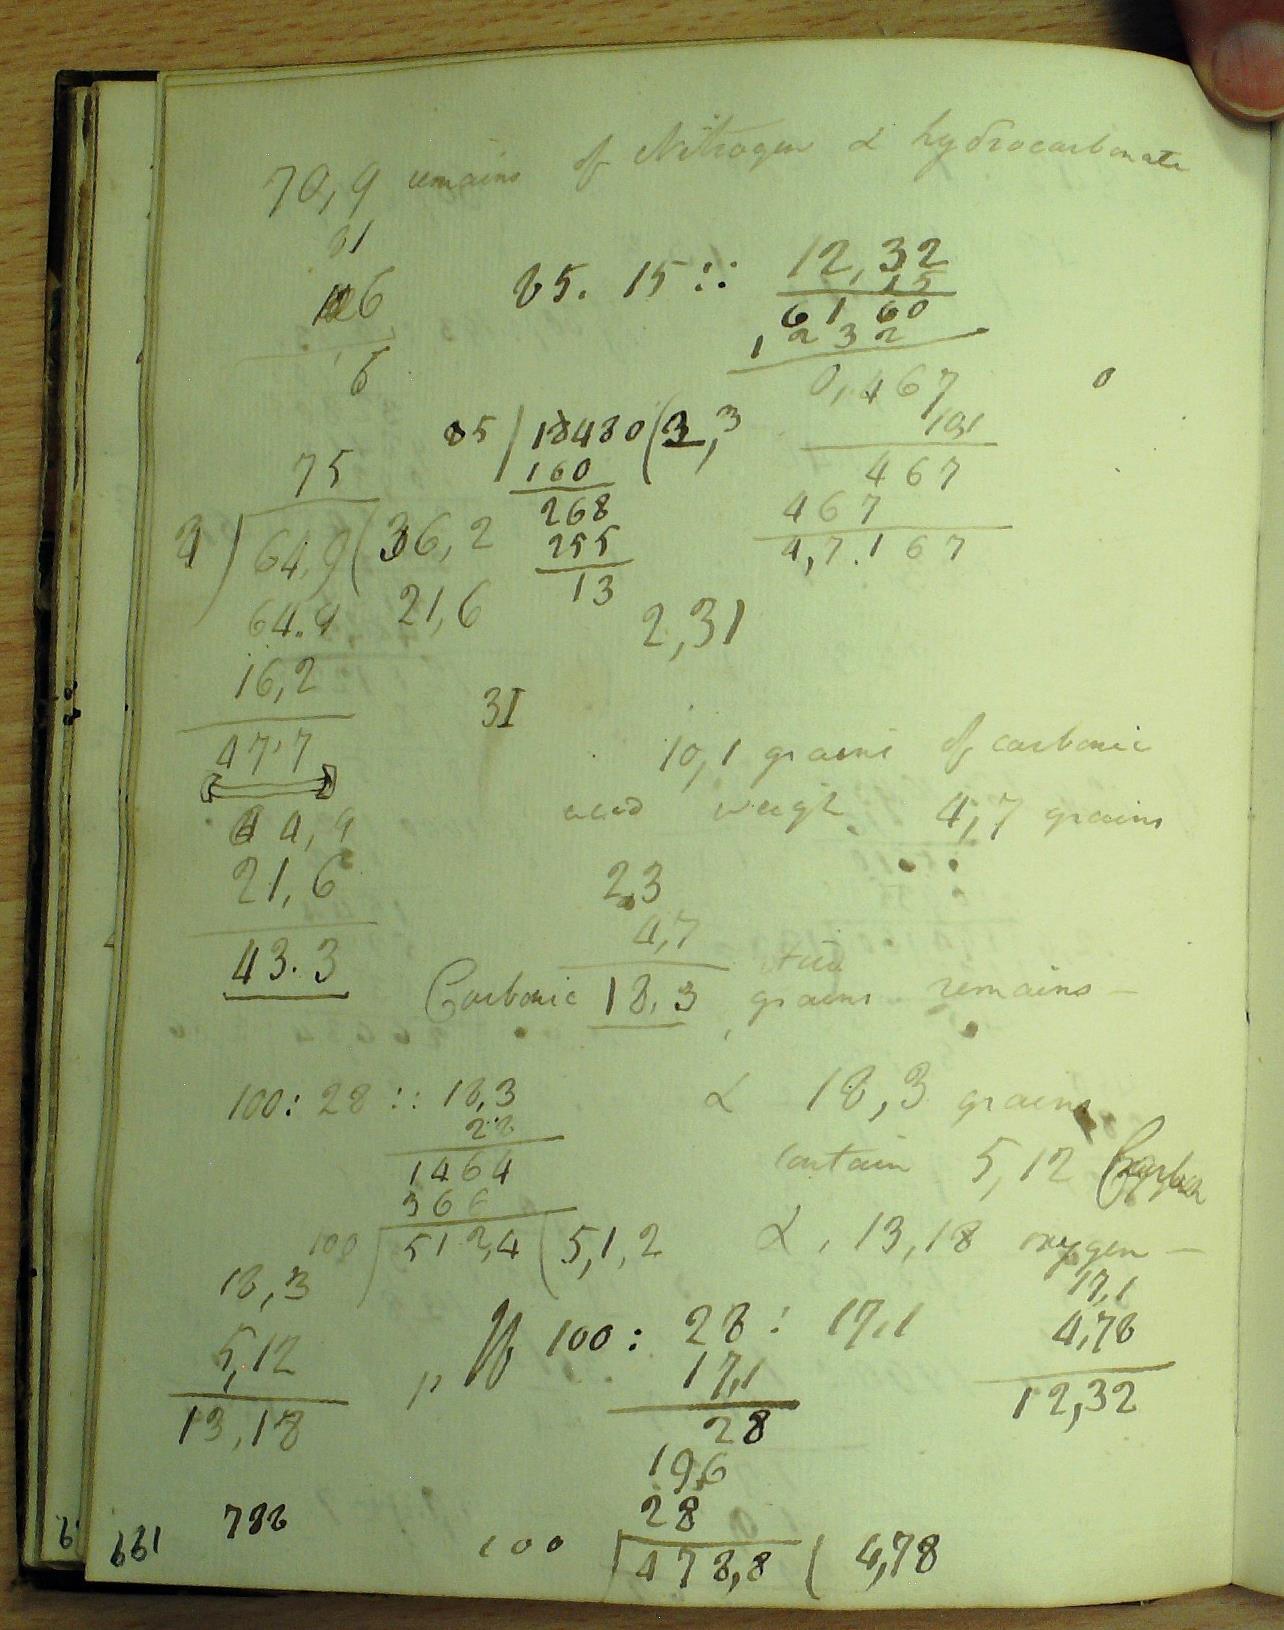 70,9 remains of Nitrogen & hydrocarbonate
31
6
6
85. 15 :: 12,32
15
6160
1232
0,467
101
467
467
4,7.167
85 | 18480 ( 3,3
160
268
255
13
2,31
75
64,9 ( 36,2
64.9 21,6
16,2
47.7
31
64,9
21,6
43.3
10,1 grains of carbonic
acid weigh 4,7 grains
23
4,7
Carbonic 18,3 Acid grains remains —
100 : 28 :: 18,3
28
1464
366
100 | 512,4 ( 5,1,2
& 18,3 grains
contain 5,12 Carbon
& , 13,18 oxygen —
18,3
5,12
13,18
If 100 : 28 : 17,1
17,1
28
196
28
100 | 478,8 ( 4,78
17,1
4,78
12,32
786
661